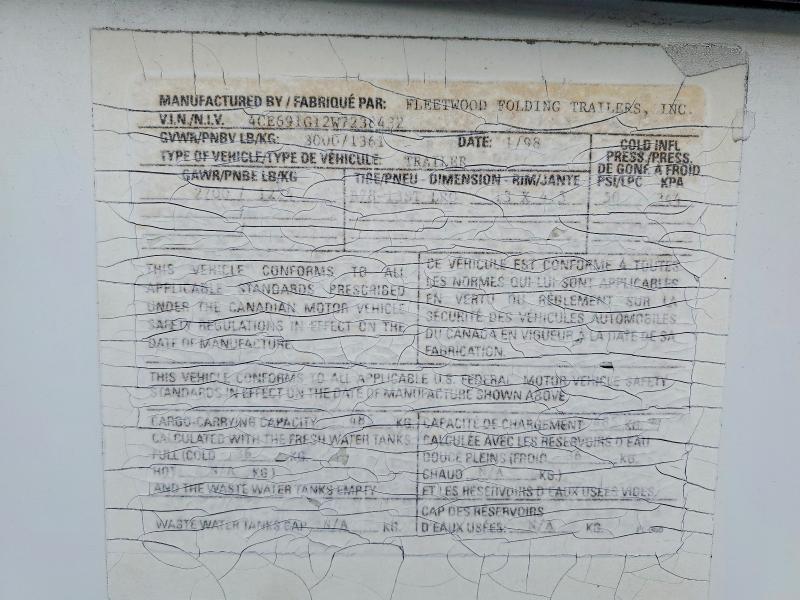 MANUFACTURED BY / FABRIQUÉ PAR: FLEETWOOD FOLDING TRAILERS, INC.
V.I.N./N.I.V.
GVWR/PNBV LB/KG: 3000/1361 DATE: 1/98
TYPE OF VEHICLE/TYPE DE VÉHICULE: TRAILER
COLD INFL
PRESS./PRESS.
DE GONF. À FROID
GAWR/PNBE LB/KG TIRE/PNEU - DIMENSION - RIM/JANTE PSI/LPC KPA
THIS VEHICLE CONFORMS TO ALL
APPLICABLE STANDARDS PRESCRIBED
UNDER THE CANADIAN MOTOR VEHICLE
SAFETY REGULATIONS IN EFFECT ON THE
DATE OF MANUFACTURE.
CE VÉHICULE EST CONFORME À TOUTES
LES NORMES QUI LUI SONT APPLICABLES
EN VERTU DU RÈGLEMENT SUR LA
SÉCURITÉ DES VÉHICULES AUTOMOBILES
DU CANADA EN VIGUEUR À LA DATE DE SA
FABRICATION.
THIS VEHICLE CONFORMS TO ALL APPLICABLE U.S. FEDERAL MOTOR VEHICLE SAFETY
STANDARDS IN EFFECT ON THE DATE OF MANUFACTURE SHOWN ABOVE.
CARGO-CARRYING CAPACITY KG.
CALCULATED WITH THE FRESH WATER TANKS
FULL (COLD KG.
HOT N/A KG.)
AND THE WASTE WATER TANKS EMPTY
WASTE WATER TANKS CAP. N/A KG.
CAPACITÉ DE CHARGEMENT KG.
CALCULÉE AVEC LES RÉSERVOIRS D'EAU
DOUCE PLEINS (FROID KG.
CHAUD N/A KG.)
ET LES RÉSERVOIRS D'EAUX USÉES VIDES.
CAP DES RÉSERVOIRS
D'EAUX USÉES: N/A KG.